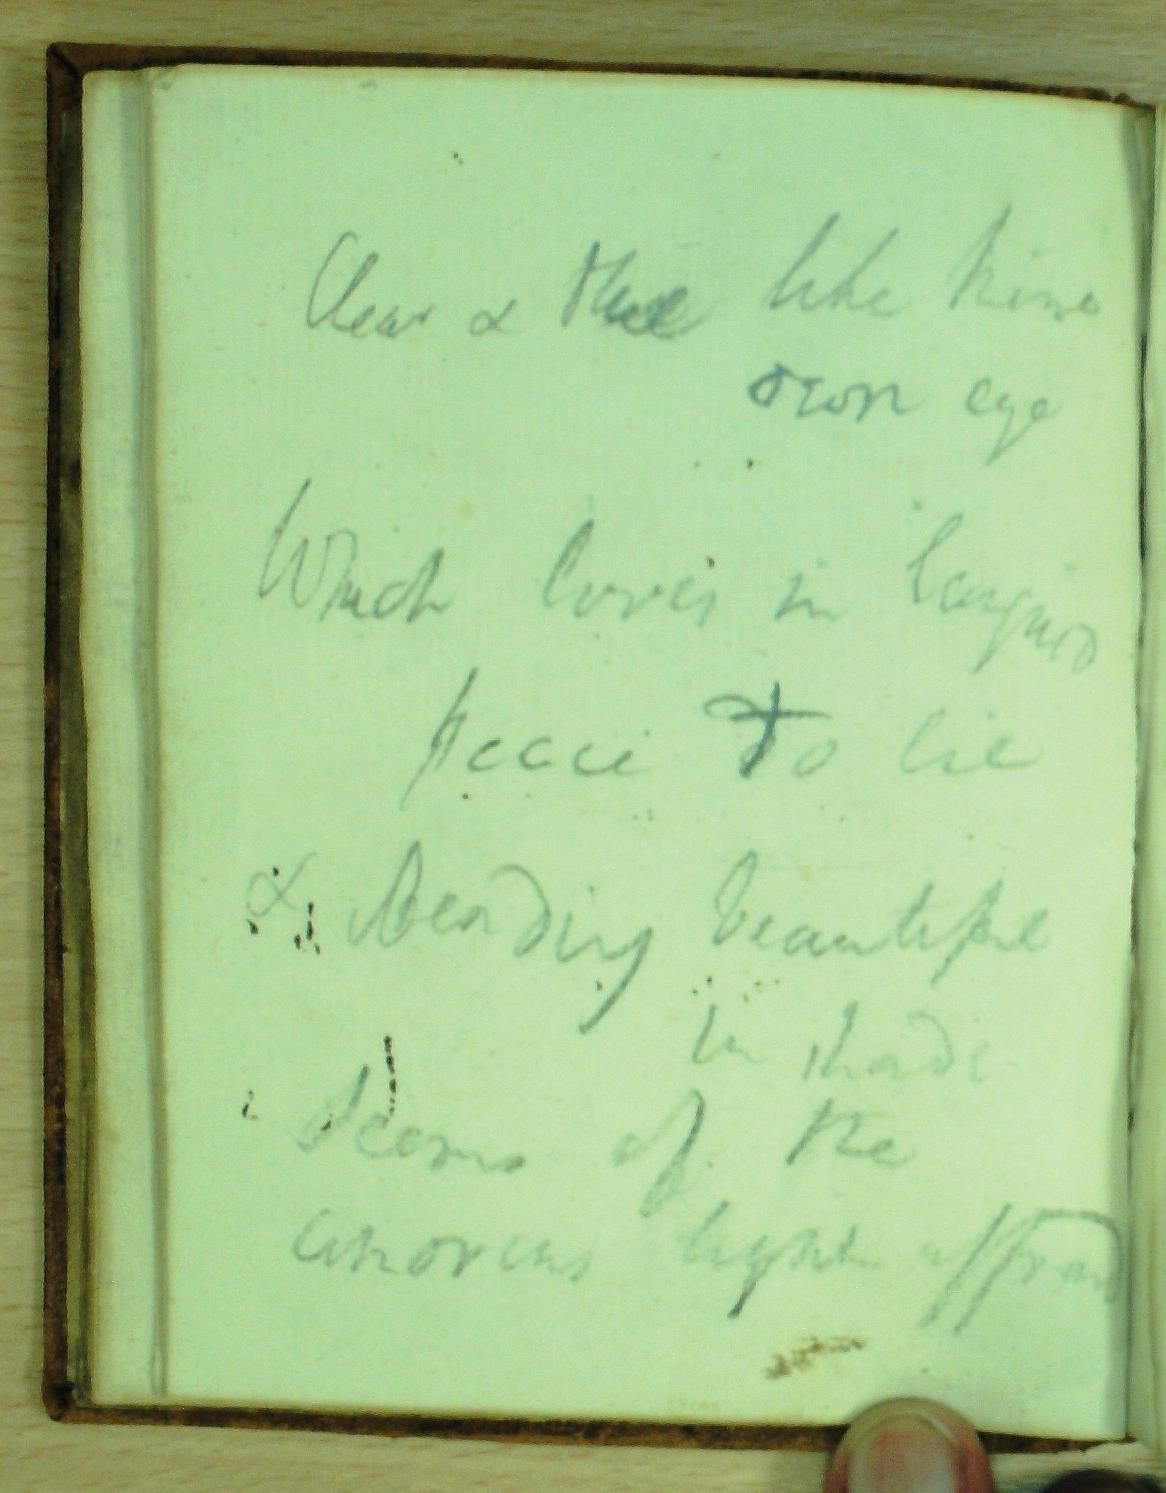 Clear & blue like thine
own eye
Which loves in languid
peace to lie
& Bending beautiful
in shade
Seems of the
amorous light affraid